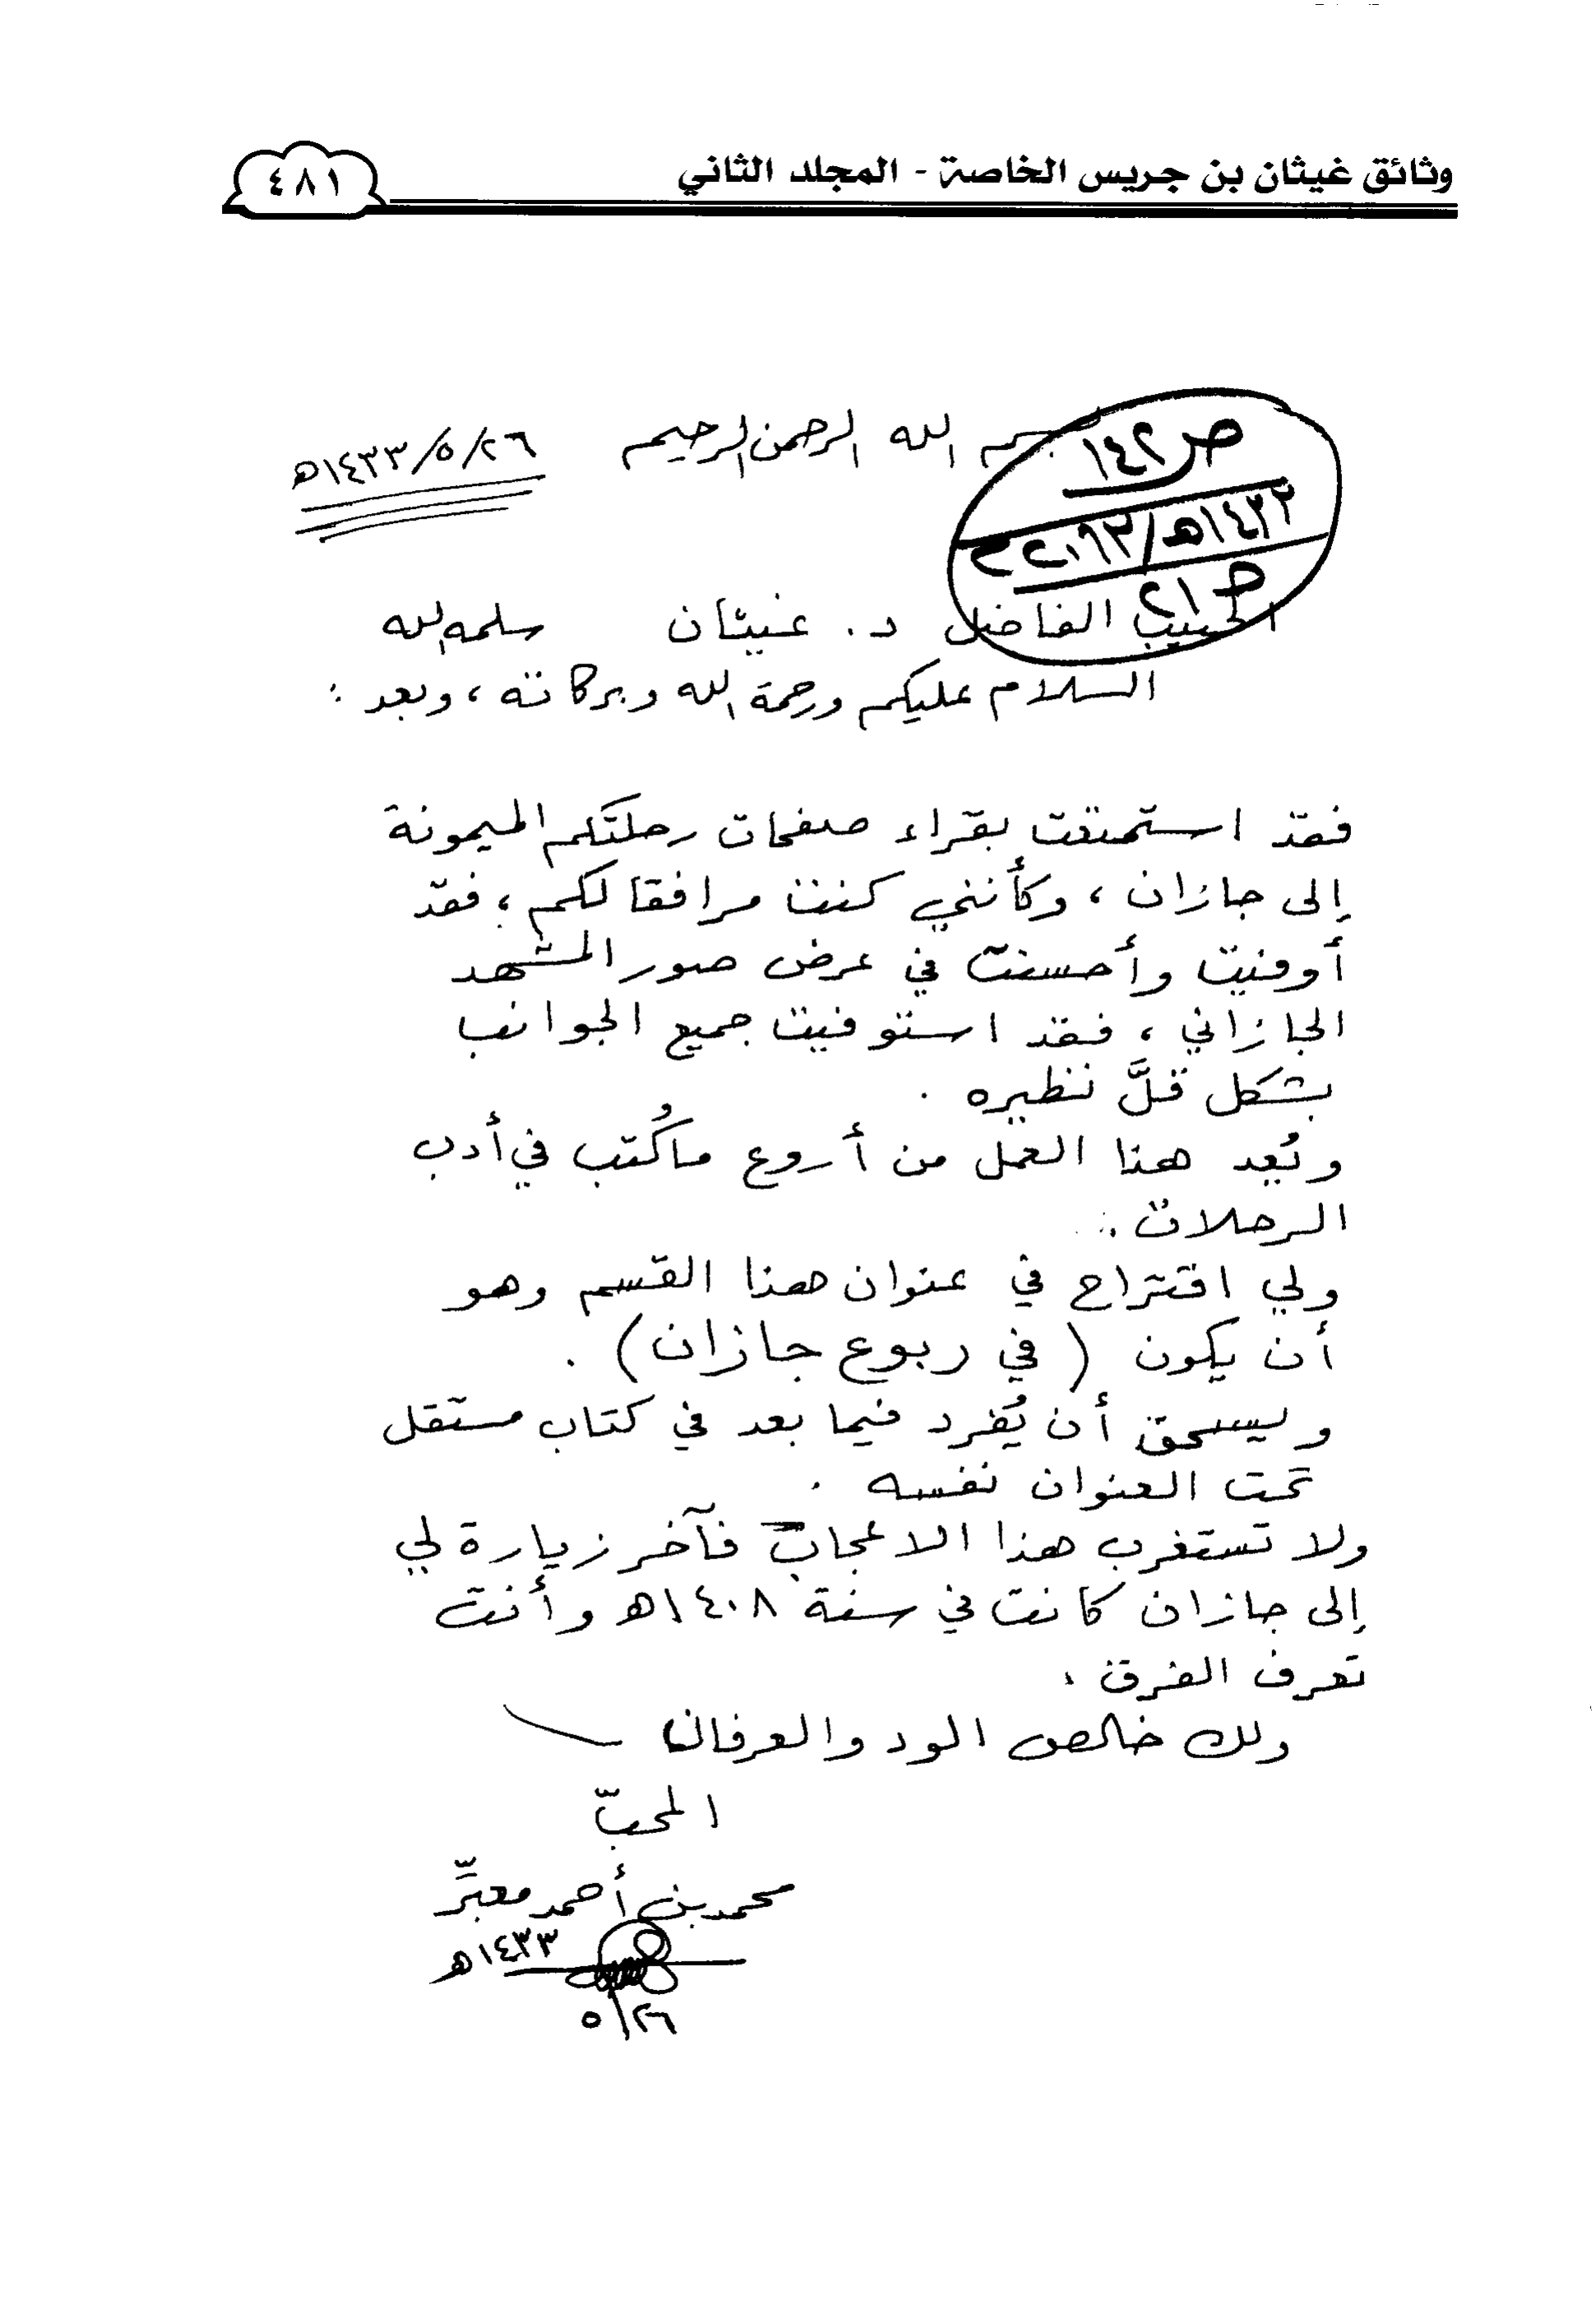 وثائق غيثان بن جريس الخاصة - المجلد الثاني
٤٨١
بسم الله الرحمن الرحيم
٢٦/٥/١٤٣٣هـ
ص ١٤٢
الحبيب الفاضل د. غيثان سلمه الله
السلام عليكم ورحمة الله وبركاته ، وبعد :
فقد استمتعت بقراء صفحات رحلتكم الميمونة
إلى جازان ، وكأنني كنت مرافقا لكم ، فقد
أوفيت وأحسنت في عرض صور المشهد
الجازاني ، فقد استوفيت جميع الجوانب
بشكل قلَّ نظيره .
ويُعد هذا العمل من أروع ما كُتب في أدب
الرحلات .
ولي اقتراح في عنوان هذا القسم وهو
أن يكون ( في ربوع جازان ) .
وليستحق أن يُفرد فيما بعد في كتاب مستقل
تحت العنوان نفسه .
ولا تستغرب هذا الاعجاب فآخر زيارة لي
إلى جازان كانت في سنة ١٤٠٨هـ وأنت
تعرف الفرق .
ولك خالص الود والعرفان
المحبّ
محمد بن أحمد معبِّر
١٤٣٣هـ
٢٦/٥